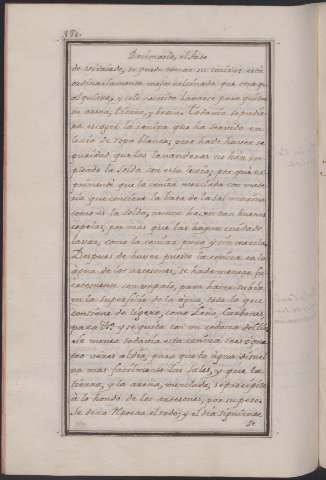 Ordinario, el Sabe
de colalado, se puede tomar su ceniza: está
ordinariamente mejor calcinada que otra qu
alquiera, y solo necesita lavarse para quitar
su arena, tierra, y brasa. Todavia, se pudie
ra escoger la ceniza que ha servido en
lexia de ropa blanca; pero hade haver se
guridad que las Lavanderas no han em
pleado la Solda con esta lexia; por que es
perimenté que la ceniza mezclada con mate
ria que contiene la base de la sal marina
como es la solda, nunca hacen tan buenas
copelas, por mas que las hagan cuidado
lavar, como la ceniza pura y sin mezcla.
Despues de haver puesto la ceniza en la
agua de los artesones, se hade menear fre
cuentemente con un palo, para hacer subir
en la superficie de la agua, toda la que
contiene de ligero, como Leña, Carbones,
paja &c. y se quita con un cedazo de
Se menea todavia esta ceniza tres ó qua
tro vezes al dia, para que la agua disuel
va mas facilmente las sales, y que la
tierra, y la arena, mezclada, se precipite
à lo hondo de los artesones, por su peso.
Se dexa reposar el todo; y el dia siguiente
Se